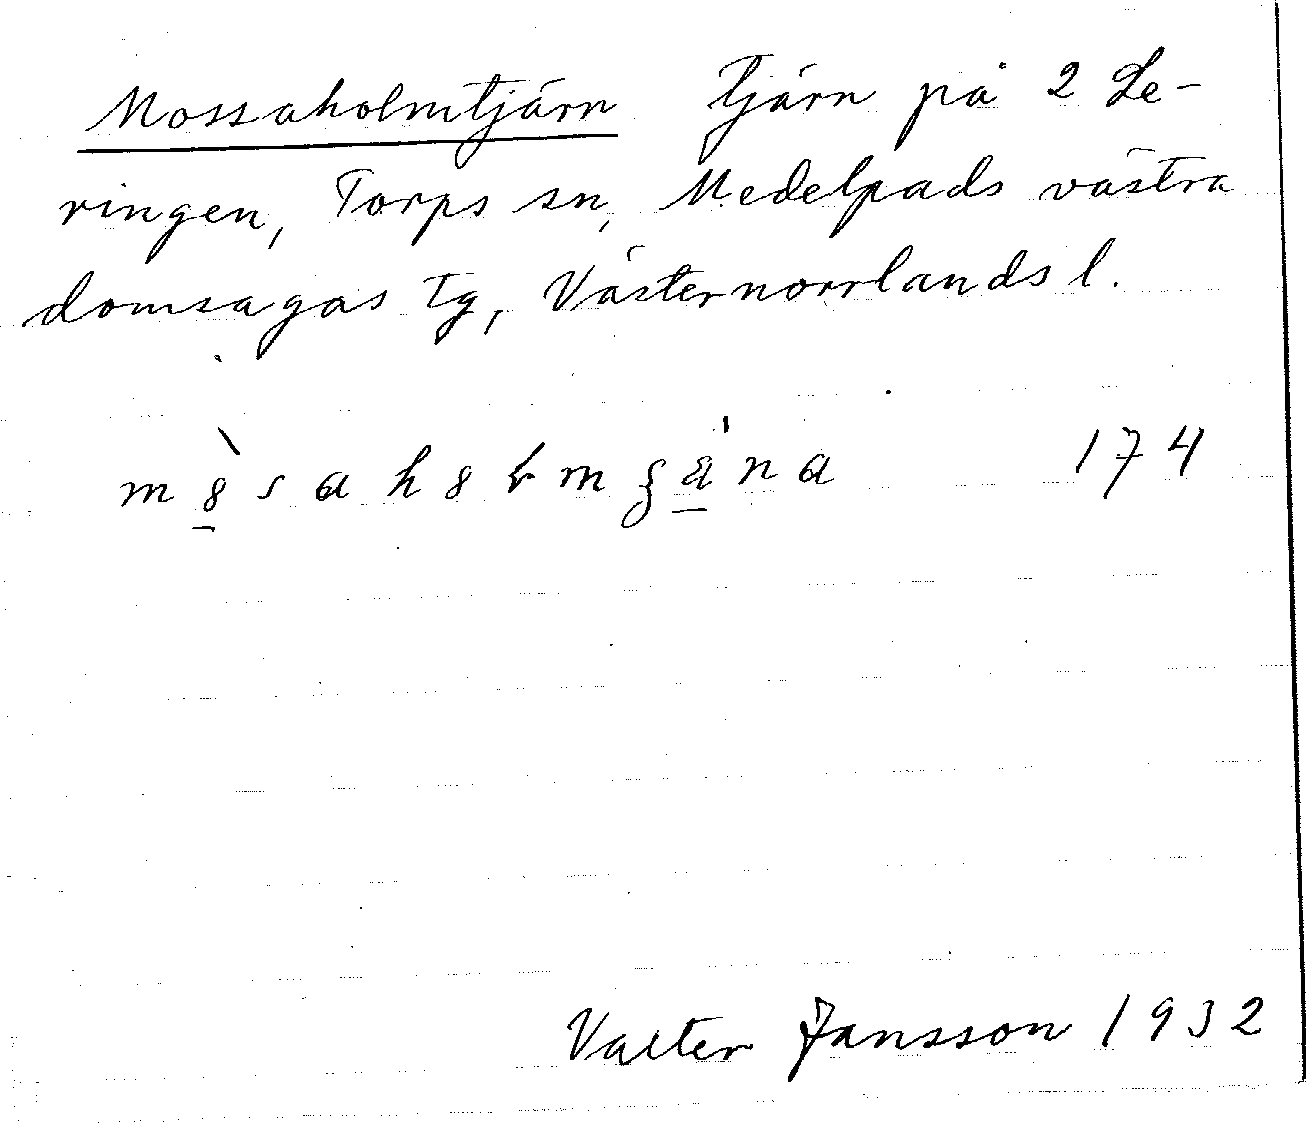 Mossaholmtjärn Tjärn på 2 Le-
ringen, Torps sn, Medelpads västra
domsagas tg, Västernorrlands l.
174
Valter Jansson 1932